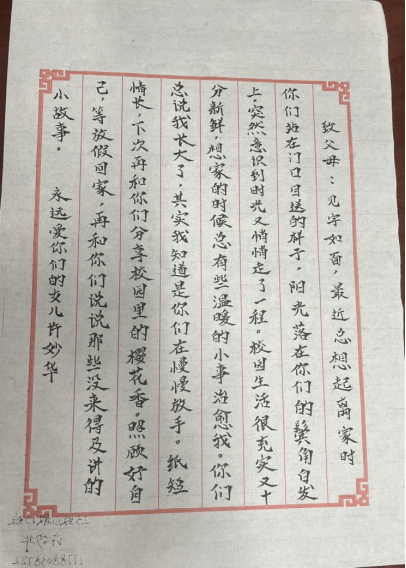 致父母：见字如面，最近总想起离家时
你们站在门口目送的样子，阳光落在你们的鬓角白发
上，突然意识到时光又悄悄走了一程。校园生活很充实又十
分新鲜，想家的时候总有些温暖的小事治愈我。你们
总说我长大了，其实我知道是你们在慢慢放手。纸短
情长，下次再和你们分享校园里的樱花香。照顾好自
己，等放假回家，再和你们说说那些没来得及讲的
小故事。 永远爱你们的女儿许妙华